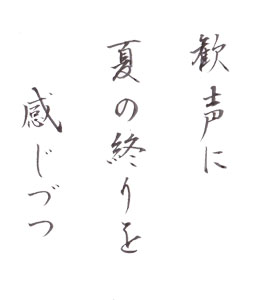 歓声に
夏の終りを
感じづつ